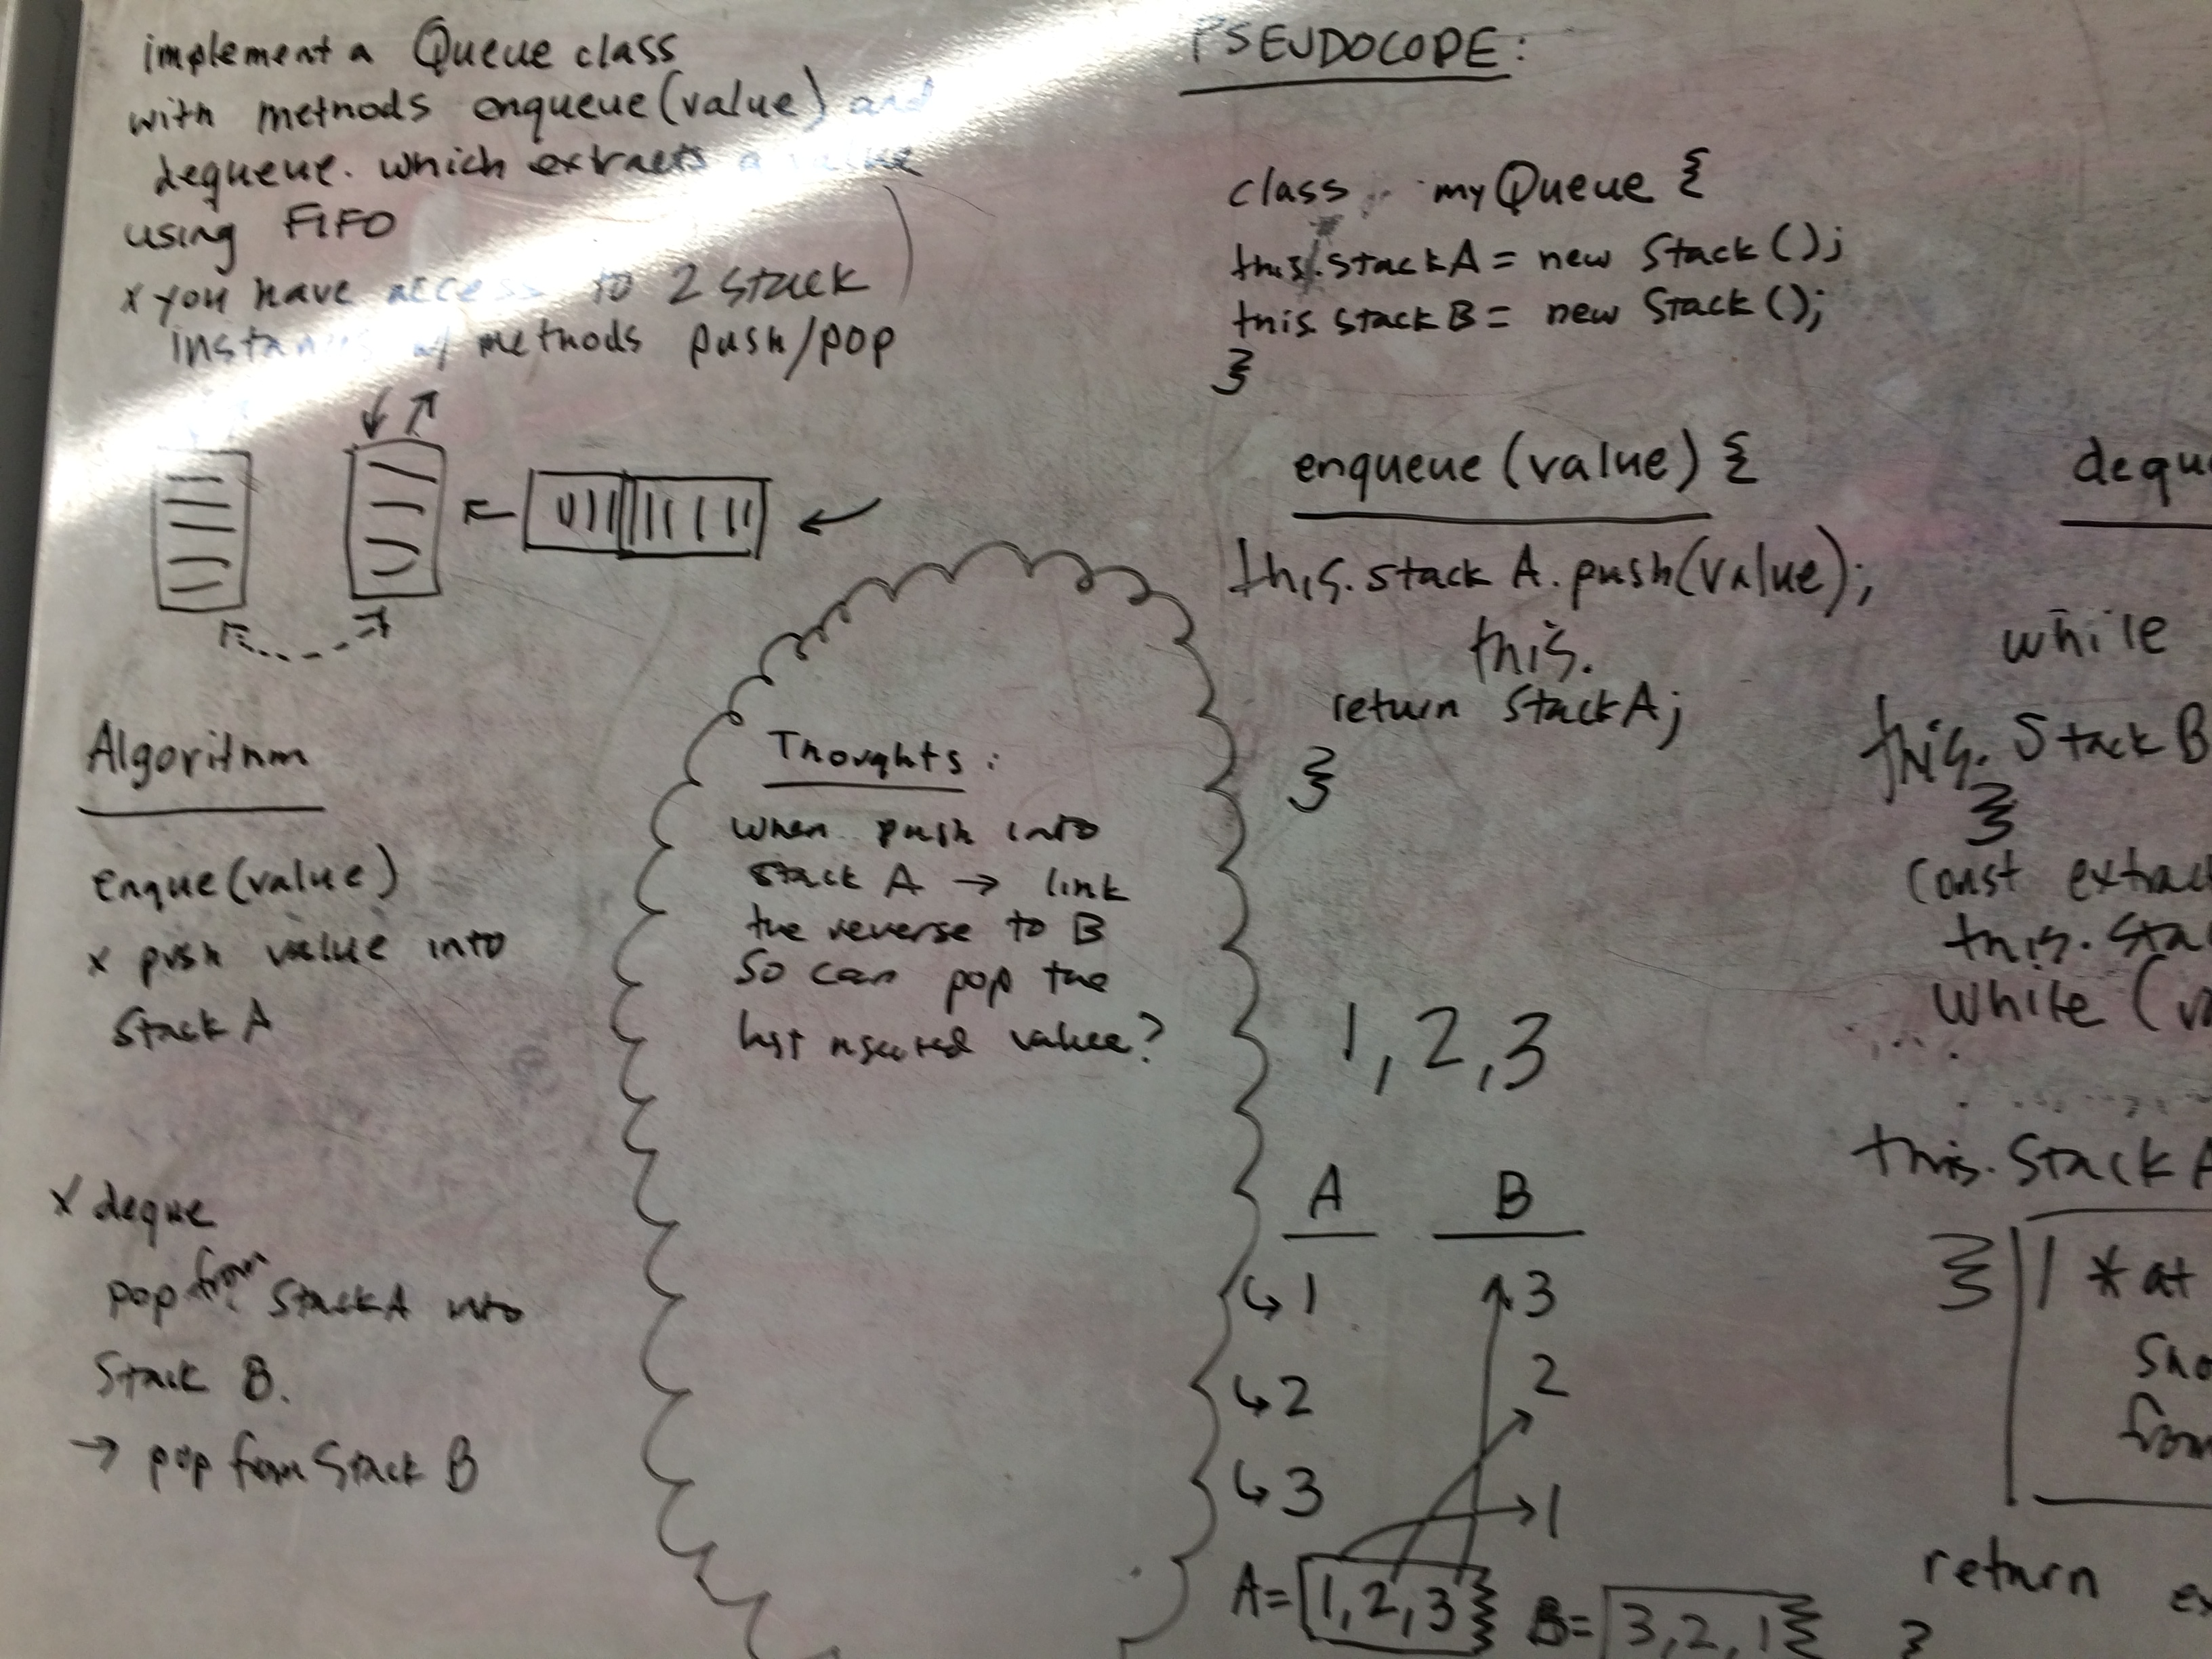 implement a Queue class
with methods enqueue(value) and
dequeue. which extracts a value
using FIFO
x you have access to 2 stack
instances w/ methods push/pop
Algorithm
enque(value)
x push value into
Stack A
x deque
pop from Stack A into
Stack B.
→ pop from Stack B
Thoughts:
when push into
stack A → link
the reverse to B
So can pop the
value?
PSEUDOCODE:
class myQueue {
this.stackA = new Stack();
this.stackB = new Stack();
}
enqueue(value) {
this.stack A.push(value);
this.
return StackA;
}
1,2,3
A B
↳ 1 3
↳ 2 2
↳ 3 1
A=[1,2,3} B=[3,2,1}
dequ
while
this.StackB
}
const extrac
this.Sta
while (
this.StackA
}
* at
from
return ex
}